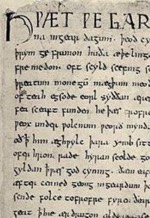 HǷÆT ǷE GAR
na ingear dagum. þeod cy
þrym ge frunon huða æþeling
fre medon. oft scyld scefing
þreatum monegū mægþum
of teah egsode eorl syððan
fea sceaft funden he þæs frofre
ƿeox under ƿolcnum ƿeorð mynd
oð ꝥ him æghƿylc þara ymb sitt
ofer hron rade hyran scolde
gyldan ꝥ ƿæs god cyning. ðæm
æfter cenned geong ingeardum
sende folce tofrofre fyren
geat ꝥ hie ær drugon aldor